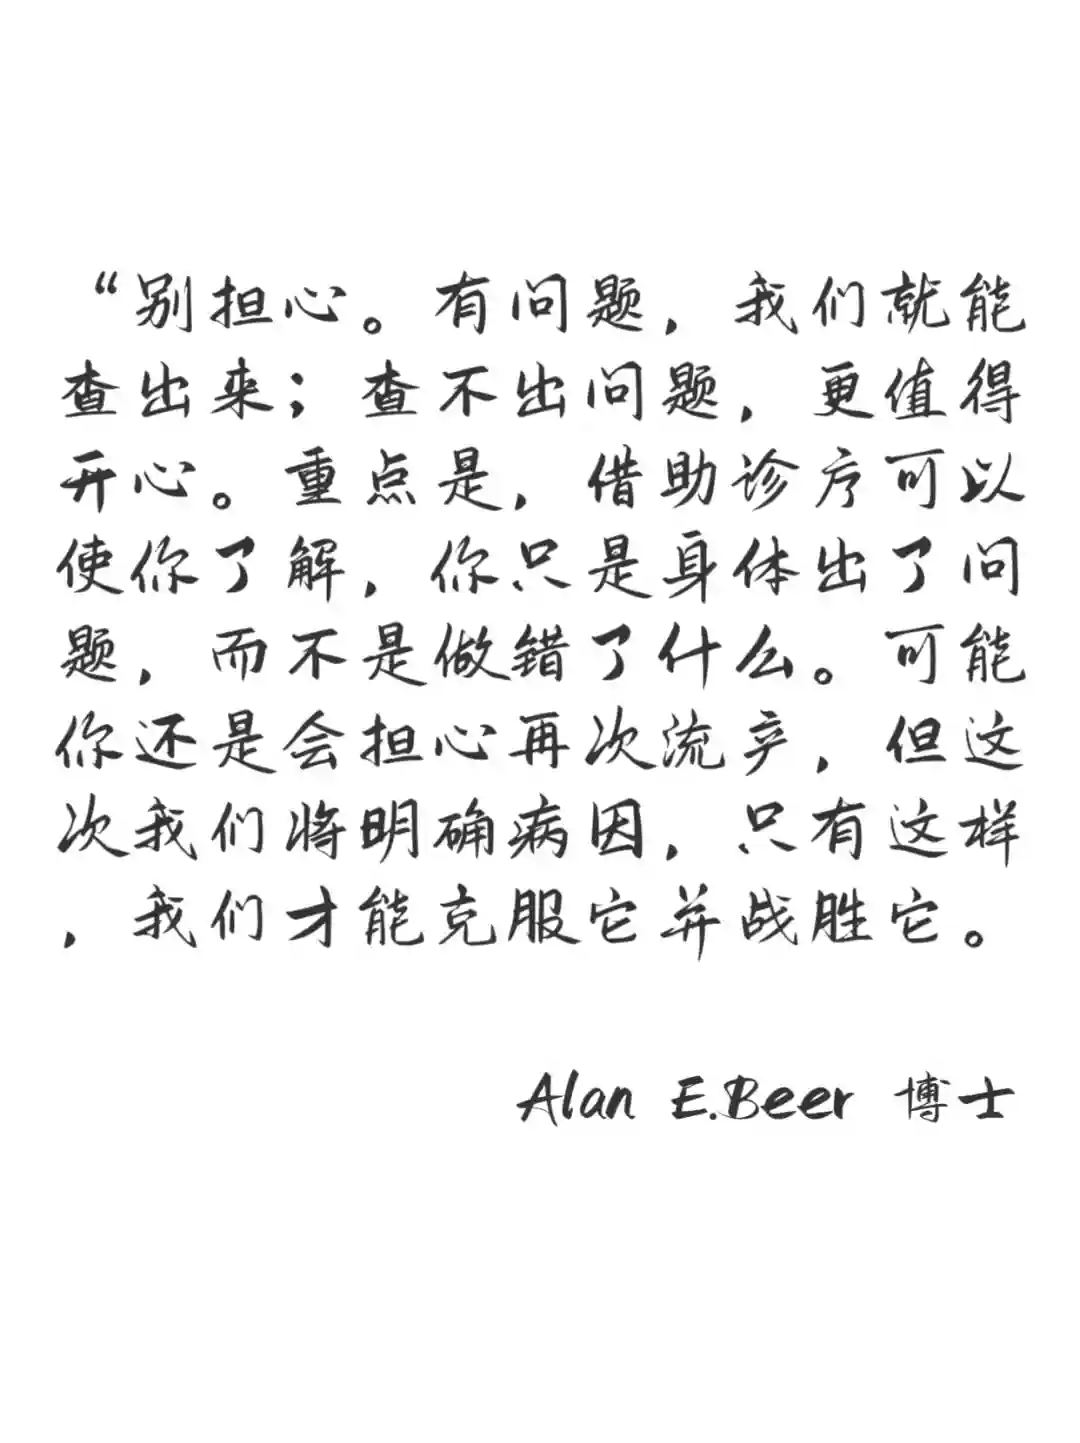 “别担心。有问题，我们就能
查出来；查不出问题，更值得
开心。重点是，借助诊疗可以
使你了解，你只是身体出了问
题，而不是做错了什么。可能
你还是会担心再次流产，但这
次我们将明确病因，只有这样
，我们才能克服它并战胜它。
Alan E.Beer 博士